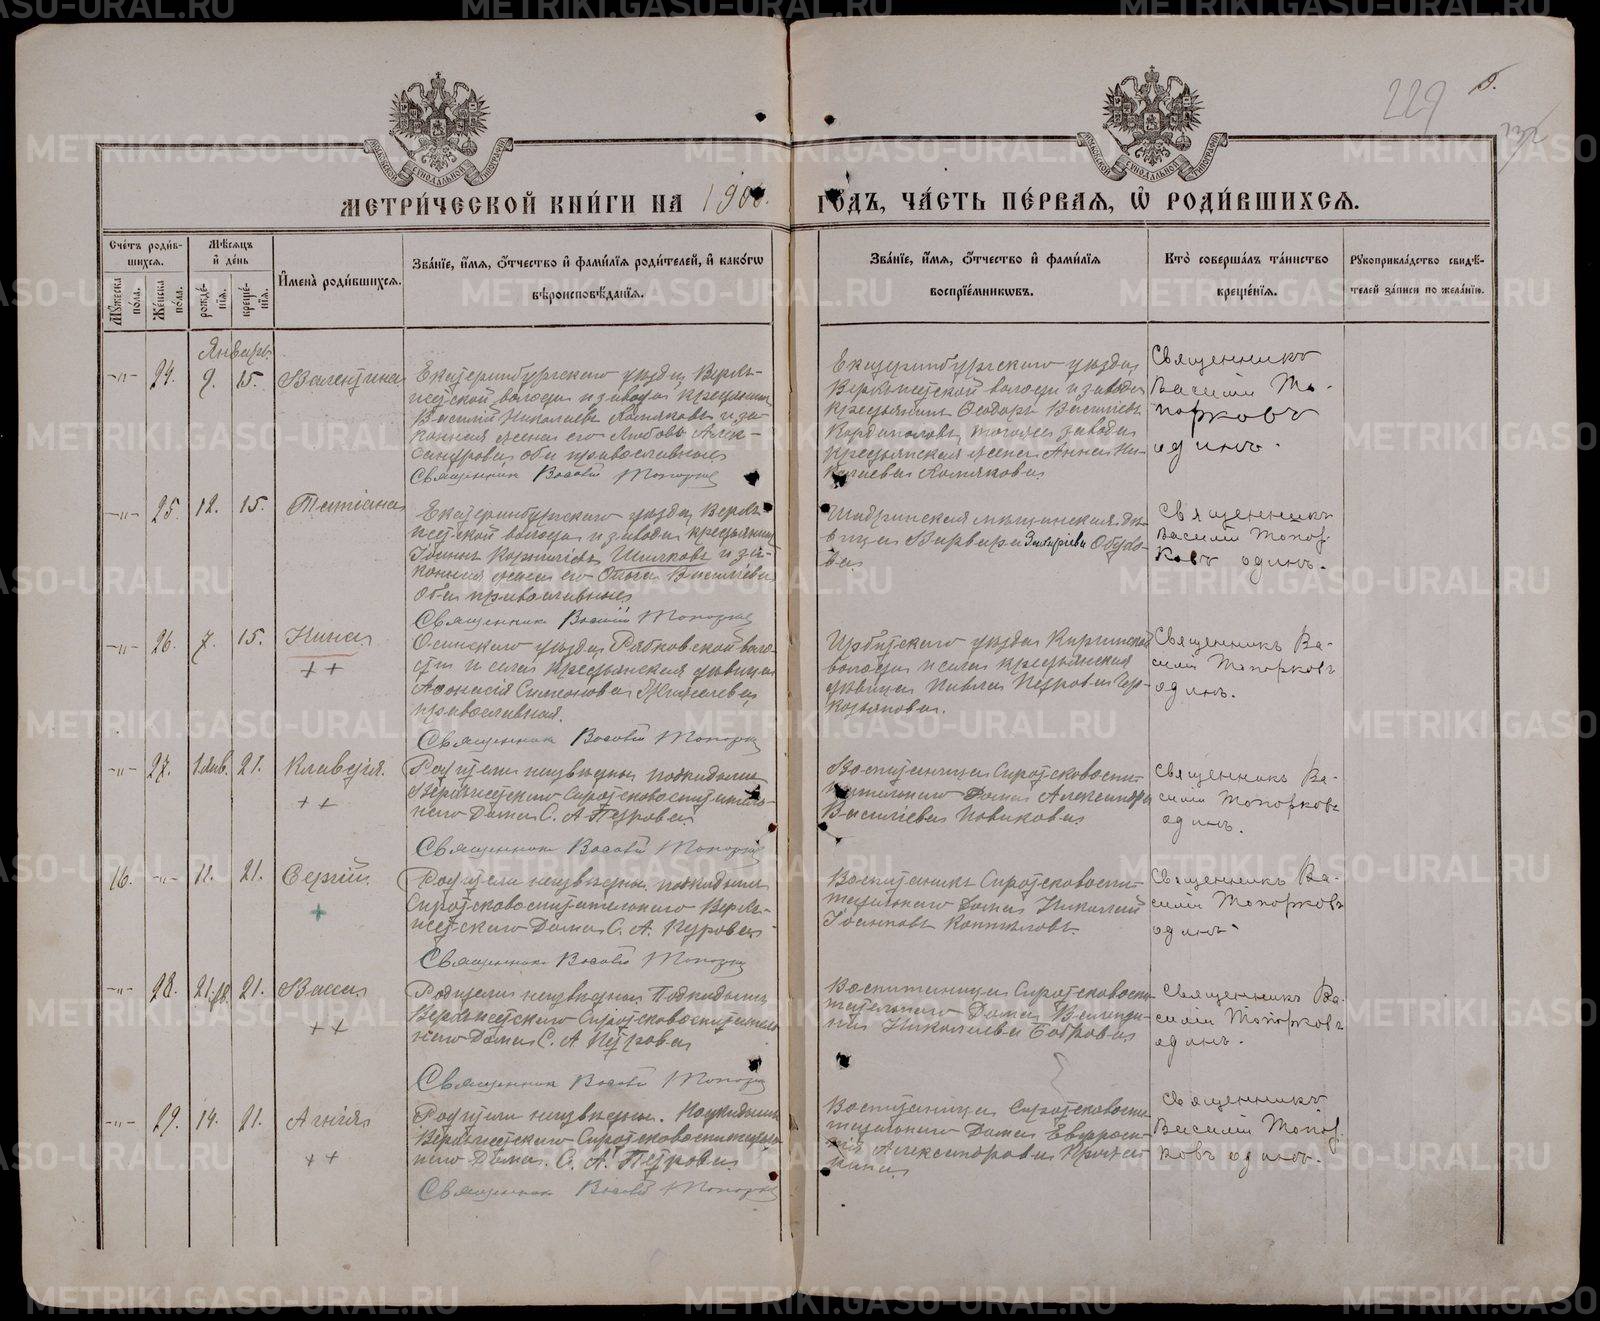 229
МЕТРИ́ЧЕСКОЙ КНИ́ГИ НА 1900
ГО́ДЪ, ЧА́СТЬ ПЕ́РВАЯ, Ѡ҆ РОДИ́ВШИХСЯ.
Сче́тъ роди́в-
шихся.
Мꙋ́жеска по́ла.
Же́нска по́ла.
Мѣ́сяцъ и҆ де́нь
рожде́-
нїя.
креще́-
нїя.
И҆мена̀ роди́вшихся.
Зва́нїе, и҆́мя, о҆́тчество и҆ фами́лїя роди́телей, и҆ како́гѡ
вѣроисповѣ́данїя.
Зва́нїе, и҆́мя, о҆́тчество и҆ фами́лїя
воспрїе́мниковъ.
Кто̀ соверша́лъ та́инство
креще́нїя.
Рꙋкоприкла́дство свидѣ́-
телей за́писи по жела́нїю.
Январь
-"- 24. 9. 15. Валентина
Екатеринбургскаго уѣзда, Верхъ-
исетской волости и завода крестьянинъ
Василій Николаевъ Хомяковъ и за-
конная жена его Любовь Алек-
сандрова оба православные
Священник Васил Топорков
Екатеринбургскаго уѣзда,
Верхъисетской волости и завода
крестьянинъ Ѳеодоръ Васильевъ
Кардаполовъ, тогоже завода
крестьянская жена Анна Ни-
колаева Хомякова.
Священникъ
Василій То-
порковъ
одинъ.
-"- 25. 12. 15. Татіана
Екатеринбургскаго уѣзда, Верхъ-
исетской волости и завода крестьянинъ
Іоаннъ Корниліевъ Шиляковъ и за-
конная жена его Ольга Василіева
Оба православные
Священник Василій Топорков
Шадринская мѣщанская дѣ-
вица Варвара Захаріева Обухо-
ва
Священникъ
Василій Топор-
ковъ одинъ.
-"- 26. 7. 15. Нина
Осинскаго уѣзда, Рябковской воло-
сти и села крестьянская дѣвица
Аѳанасія Симонова
православная.
Священник Васил Топорков
Ирбитскаго уѣзда Киргинской
волости и села крестьянская
дѣвица Павла Петрова Чер-
Священникъ Ва-
силій Топорковъ
одинъ.
-"- 27. 1 янв. 21. Клавдія.
Родители неизвѣстны подкидышъ
Верхисетскаго Сиротсковоспитатель-
наго Дома С. А Петрова.
Священник Васил Топорков
Воспитанница Сиротсковоспи-
тательнаго Дома Александра
Василіева Новикова
Священникъ Ва-
силій Топорковъ
одинъ.
16. -"- 12. 21. Сергій.
Родители неизвѣстны. подкидышъ
Сиротсковоспитательнаго Верхъ-
исетскаго Дома С. А. Петрова
Священник Васил Топорков
Воспитанникъ Сиротсковоспи-
тательнаго Дома Николай
Іоанновъ Коптяловъ.
Священникъ Ва-
силій Топорковъ
одинъ
-"- 28. 21. 21. Васса
Родители неизвѣстны Подкидышъ
Верхисетскаго Сиротсковоспитатель-
наго Дома С. А Петрова
Священник Васил Топорков
Воспитанница Сиротсковоспи-
тательнаго Дома Валенти-
на Николаева Боброва
Священникъ Ва-
силій Топорковъ
одинъ.
-"- 29. 14. 21. Агнія
Родители неизвѣстны. Подкидышъ
Верхъисетскаго Сиротсковоспитатель-
наго Дома. С. А. Петрова
Священник Васил Топорков
Воспитаница Сиротсковоспи-
тательнаго Дома Евфроси-
нія Александрова
Священникъ
Василій Топор-
ковъ одинъ.
METRIKI.GASO-URAL.RU